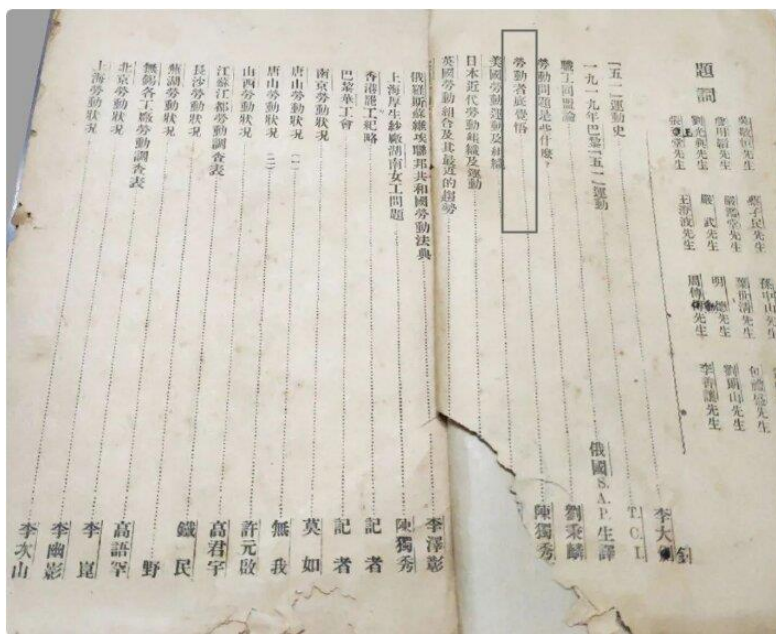 題詞
吳敬恒先生 蔡子民先生 孫中山先生
先生 先生 先生 先生
劉光典先生 嚴武先生 先生 先生
先生 王澄波先生 先生 先生
「五一」運動史 李大釗
一九一九年巴黎「五一」運動 T. C. I.
職工同盟論 俄國S. A. P. 生譯
勞動問題是些什麼？ 劉秉麟
勞動者底覺悟 陳獨秀
美國勞動運動及組織
日本近代勞動組織及運動
英國勞動組合及其最近的趨勢
俄羅斯蘇維埃聯邦共和國勞動法典 李澤彰
上海厚生紗廠湖南女工問題 陳獨秀
香港罷工紀略 記者
巴黎華工會 記者
南京勞動狀況 莫如
唐山勞動狀況（一） 無我
唐山勞動狀況（二） 許元啟
山西勞動狀況 高君宇
江蘇江都勞動調查表
長沙勞動狀況 鐵民
蕪湖勞動狀況 野
無錫各工廠勞動調查表 高語罕
北京勞動狀況 李崑
上海勞動狀況 李幽影
李次山